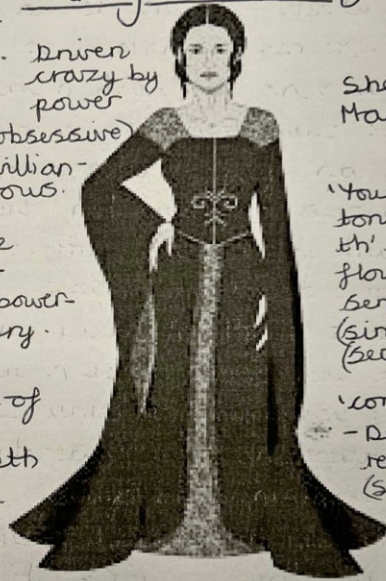 Driven
crazy by
power
obsessive)
villian-
ous.
power-
ry.
of
th
She
Ma
'You
ton
th'
flo
ser
(sin
(sec
'con
- D
re
(s